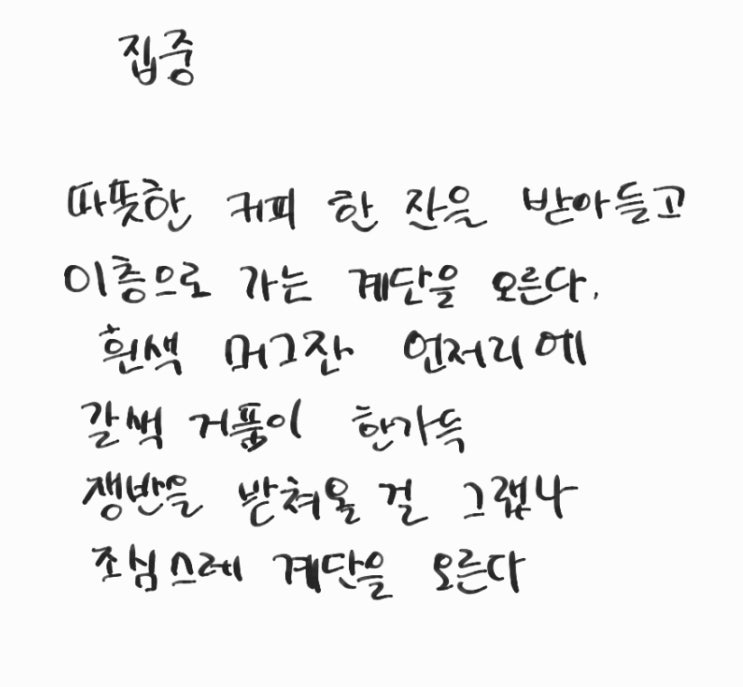 집중
따뜻한 커피 한 잔을 받아들고
이층으로 가는 계단을 오른다.
흰색 머그잔 언저리에
갈색 거품이 한가득
쟁반을 받쳐올 걸 그랬나
조심스레 계단을 오른다